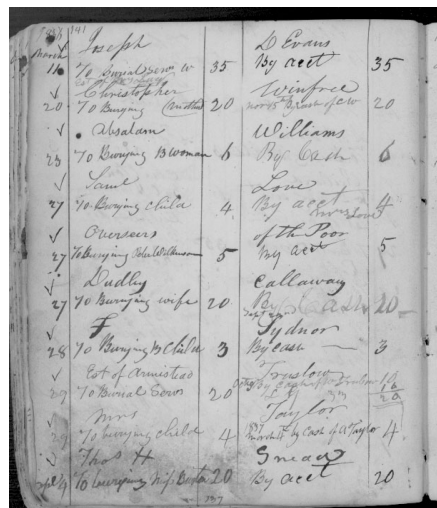 1841
Joseph D Evans
March 16 To Burial Serv w 35 By acct 35
Christopher Winfree
20 To Burying (mother) 20 20
Absalam Williams
23 To Burying B woman 6 By Cash 6
Saml Love
27 To Burying child 4 By acct 4
Overseers of the Poor
27 To Burying Wilkinson 5 By act 5
Dudley Callaway
27 To Burying wife 20 By Cash 20
F Sydnor
28 To Burying B Child 3 By cash 3
Est of Armistead Truslow
29 To Burial Servs 20 By Cash 20
Mrs Taylor
29 To burying child 4 by Cash of A Taylor 4
Thos H Snead
Apl 9 To burying 20 By acct 20